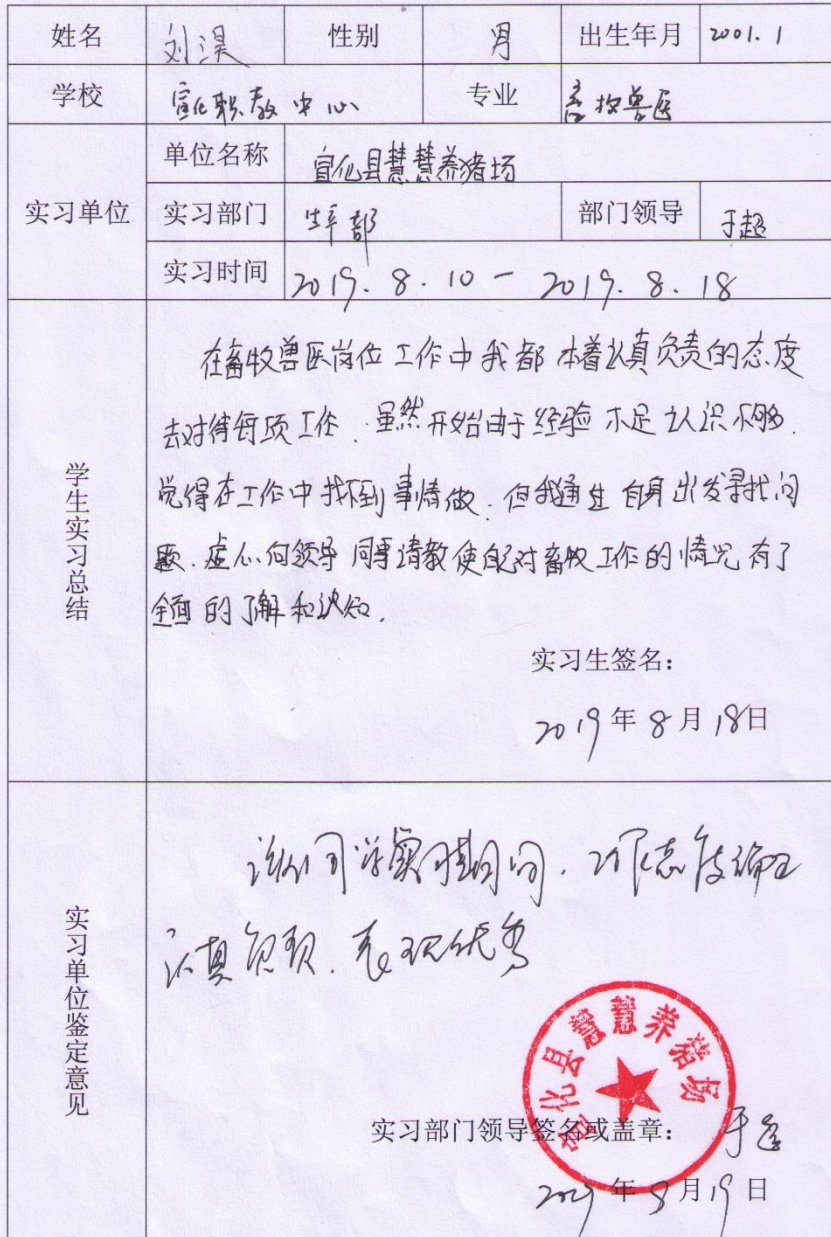 姓名 刘淏 性别 男 出生年月 2001.1
学校 宣化职教中心 专业 畜牧兽医
实习单位 单位名称 宣化县慧慧养猪场
实习部门 生产部 部门领导 于超
实习时间 2019.8.10-2019.8.18
学生实习总结
在畜牧兽医岗位工作中我都本着认真负责的态度
去对待每项工作.虽然开始由于经验不足认识不够.
觉得在工作中找不到事情做.但我通过自身出发寻找问
题.虚心向领导同事请教使自己对畜牧工作的情况有了
全面的了解和认知.
实习生签名:
2019年8月18日
实习单位鉴定意见
该同学实习期间.工作态度端正
认真负责.表现优秀
宣化县慧慧养猪场
实习部门领导签名或盖章: 于超
2019年8月19日